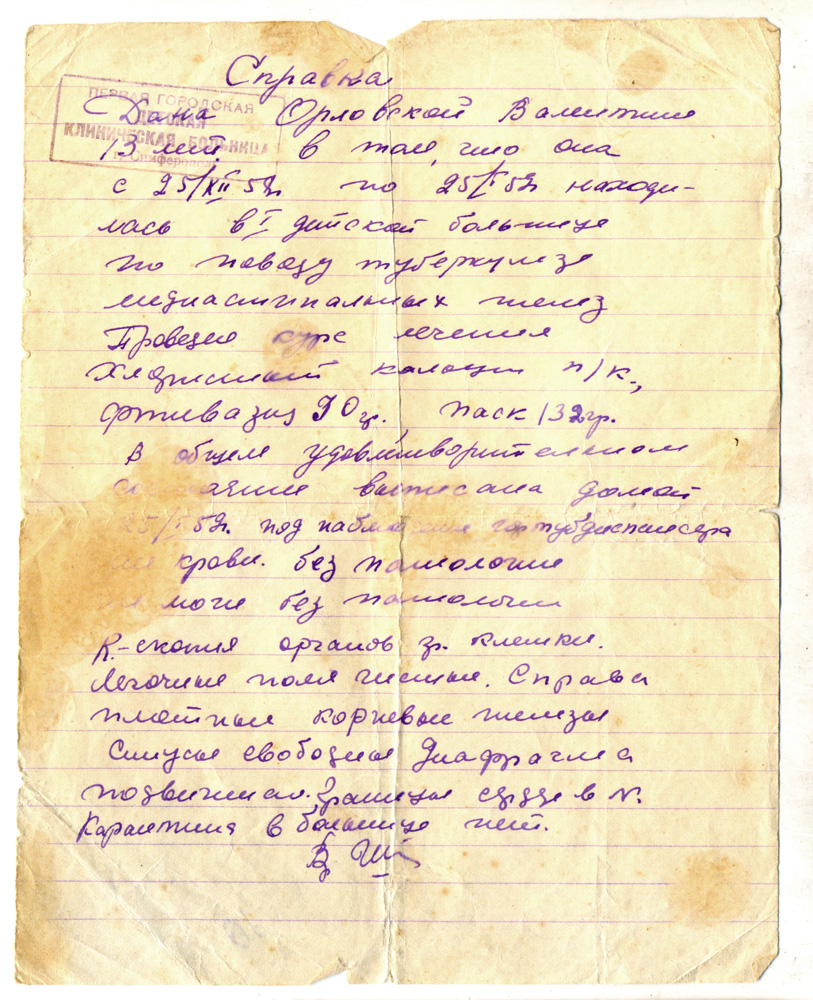 Справка
ПЕРВАЯ ГОРОДСКАЯ
ДЕТСКАЯ
КЛИНИЧЕСКАЯ БОЛЬНИЦА
г. Симферополь
Дана Орловской Валентине
13 лет в том, что она
с 25/XII 5 г. по 25/ 5 г. находи-
лась в I детской больнице
по поводу туберкулеза
медиастинальных желез
Проведен курс лечения
Хлористый кальций п/к.,
фтивазид 90 гр., паск 132 гр.
В общем удовлетворительном
состоянии выписана домой
25/ 5 г. под наблюдение тубдиспансера
крови. без патологии
мочи без патологии
R.-скопия органов гр. клетки.
Легочные поля чистые. Справа
плотные корневые железы
Синусы свободны Диафрагма
подвижная. Границы сердца в N.
Карантина в больнице нет.